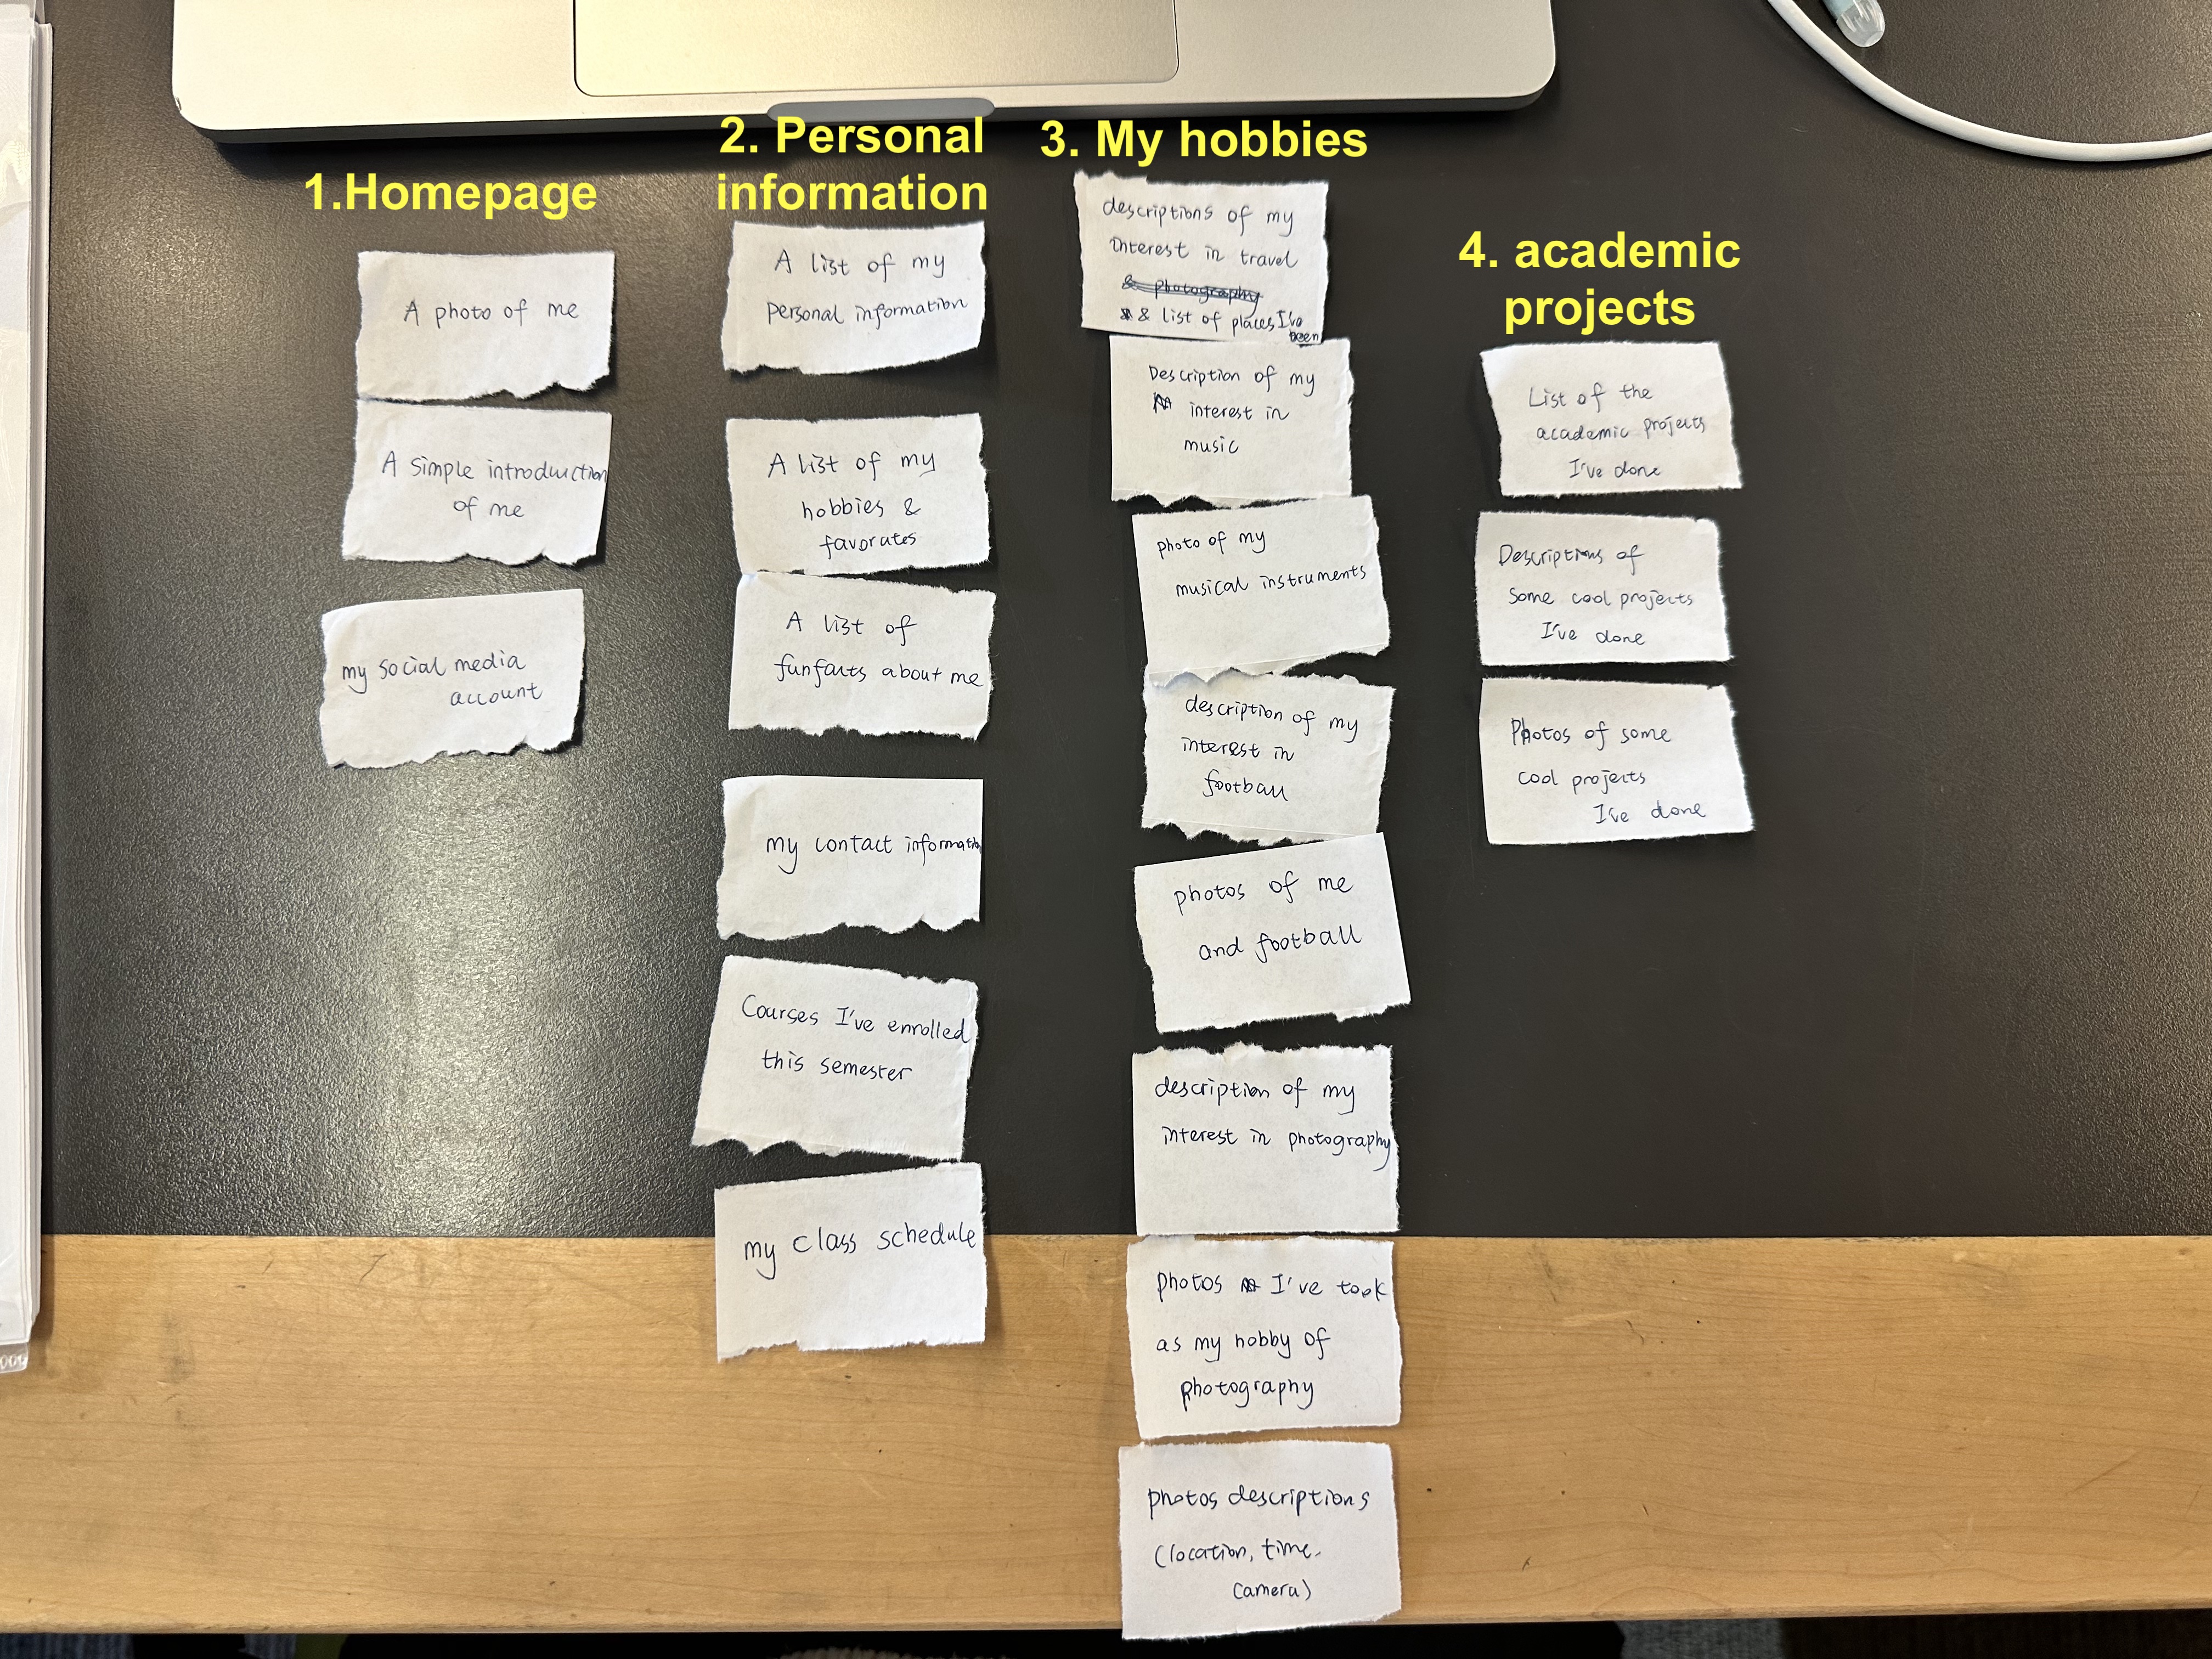 1.Homepage
A photo of me
A simple introduction
of me
my social media
account
2. Personal
information
A list of my
personal information
A list of my
hobbies &
favorates
A list of
funfacts about me
my contact information
Courses I've enrolled
this semester
my class schedule
3. My hobbies
descriptions of my
interest in travel
& photography
& list of places I've
been
Description of my
interest in
music
photo of my
musical instruments
description of my
interest in
football
photos of me
and football
description of my
interest in photography
photos I've took
as my hobby of
photography
photos descriptions
(location, time,
camera)
4. academic
projects
List of the
academic projects
I've done
Descriptions of
some cool projects
I've done
Photos of some
cool projects
I've done